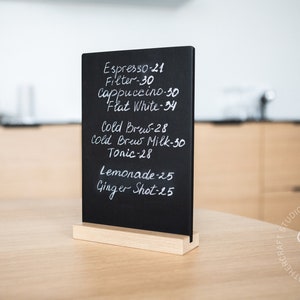 Espresso-21
Filter-30
Cappuccino-30
Flat White-34
Cold Brew-28
Cold Brew Milk-30
Tonic-28
Lemonade-25
Ginger Shot-25